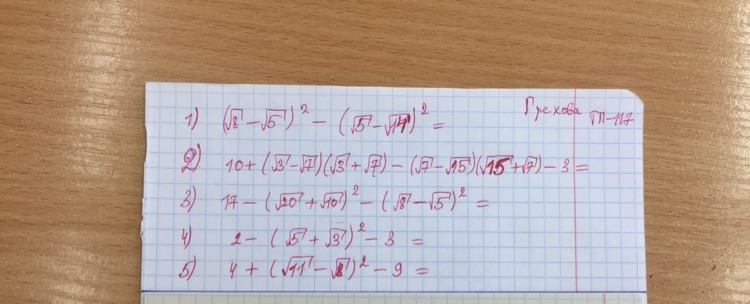 Грехова ТП-117
1) (√8 - √5)² - (√5 - √14)² =
2) 10 + (√3 - √7)(√3 + √7) - (√7 - √15)(√15 + √7) - 3 =
3) 17 - (√20 + √10)² - (√8 - √5)² =
4) 2 - (√5 + √3)² - 3 =
5) 4 + (√11 - √8)² - 9 =